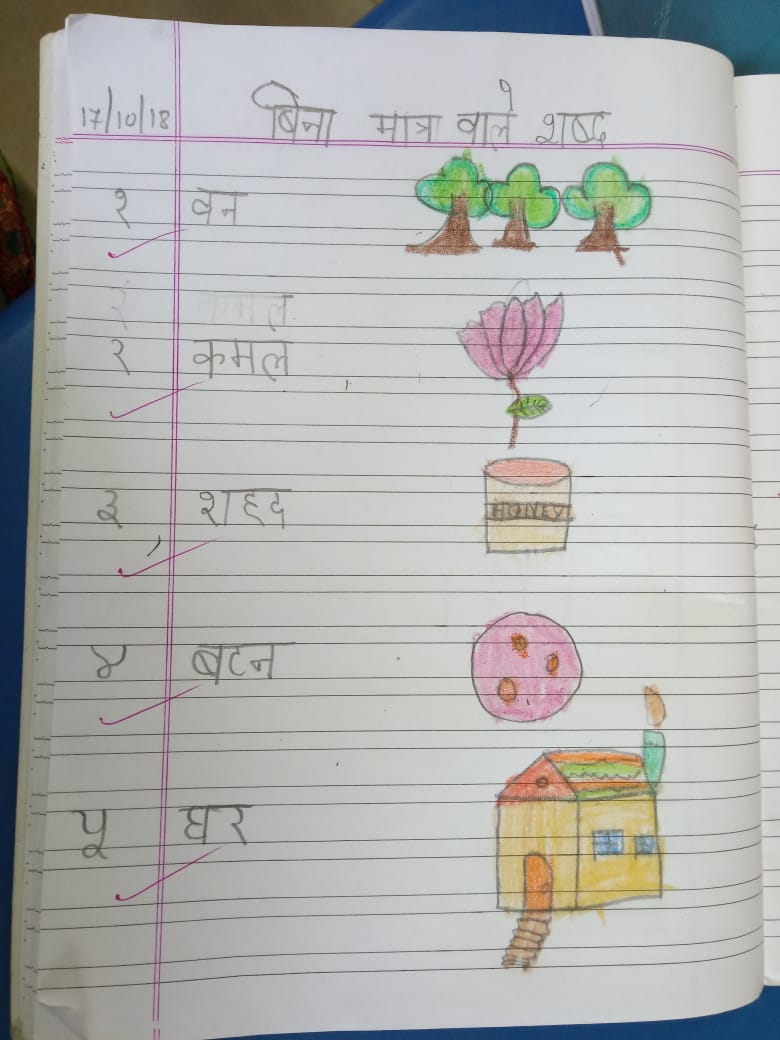 17/10/18 बिना मात्रा वाले शब्द
१ वन
२ कमल
२ कमल
HONEY
३ शहद
४ बटन
५ घर